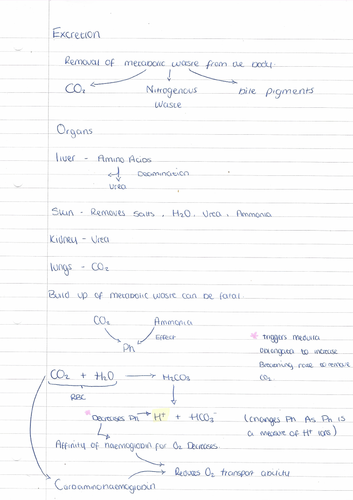 Excretion
Removal of metabolic waste from the body.
CO2 Nitrogenous waste bile pigments
Organs
liver - Amino Acids
Deamination
Urea
Skin - Removes salts, H2O, Urea, Ammonia
Kidney - Urea
lungs - CO2
Build up of metabolic waste can be fatal
CO2 Ammonia
Effect
Ph
* Triggers medulla
oblongata to increase
Breathing rate to remove
CO2
CO2 + H2O → H2CO3
RBC
* Decreases Ph → H+ + HCO3-
(changes Ph As Ph is
a measure of H+ ions)
Affinity of haemoglobin for O2 Decreases
Reduces O2 transport ability
Carbaminohaemoglobin